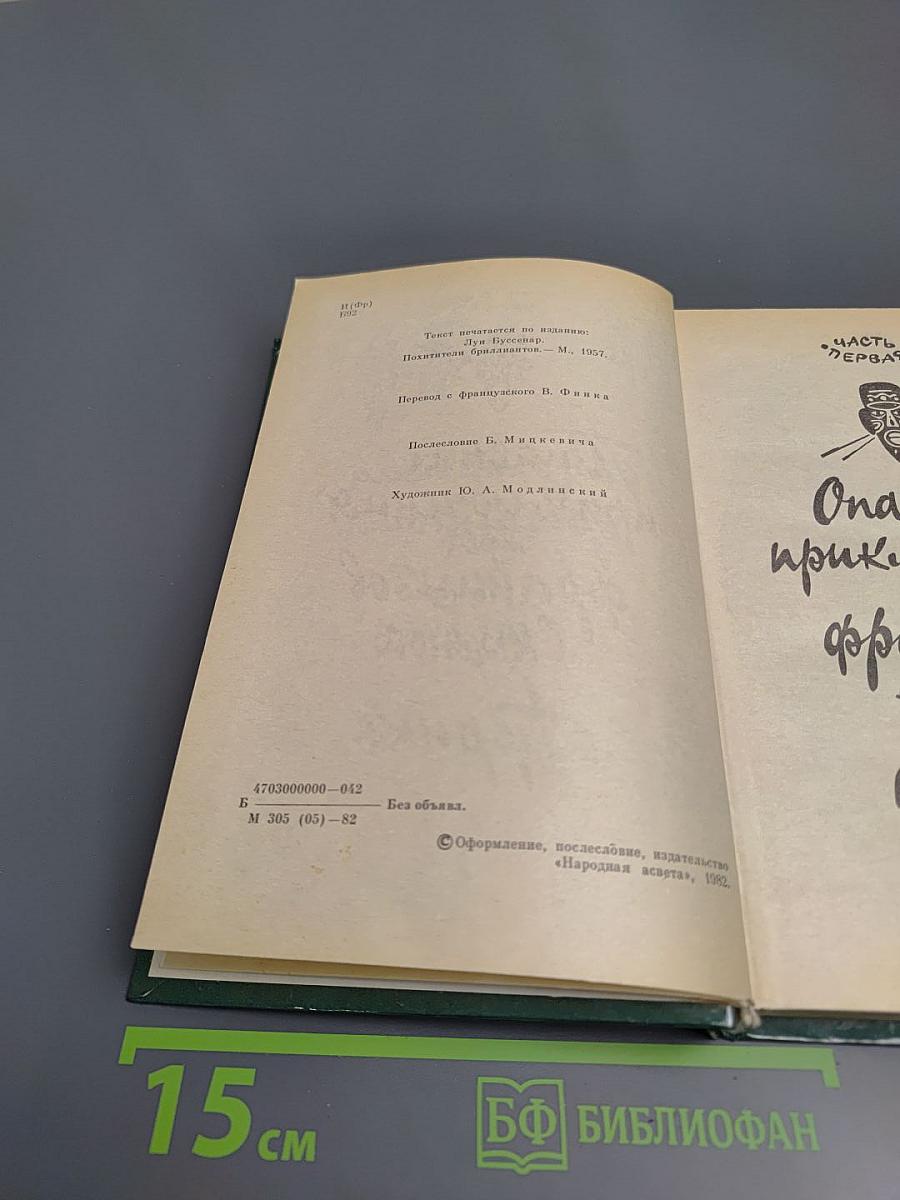 И(Фр)
Б92
Текст печатается по изданию:
Луи Буссенар.
Похитители бриллиантов.— М., 1957.
Перевод с французского В. Финка
Послесловие Б. Мицкевича
Художник Ю. А. Модлинский
4703000000—042
Б ——— Без объявл.
М 305 (05)—82
© Оформление, послесловие, издательство
«Народная асвета», 1982.
ЧАСТЬ
ПЕРВАЯ
Опа
прикл
фр
15 см
БФ БИБЛИОФАН